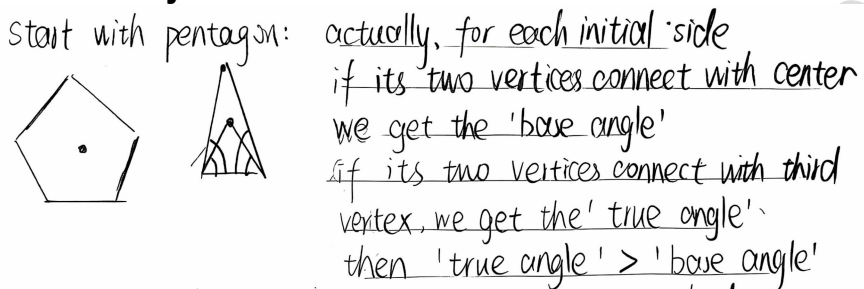 start with pentagon:
actually, for each initial side
if its two vertices connect with center
we get the 'base angle'
if its two vertices connect with third
vertex, we get the 'true angle'.
then 'true angle' > 'base angle'